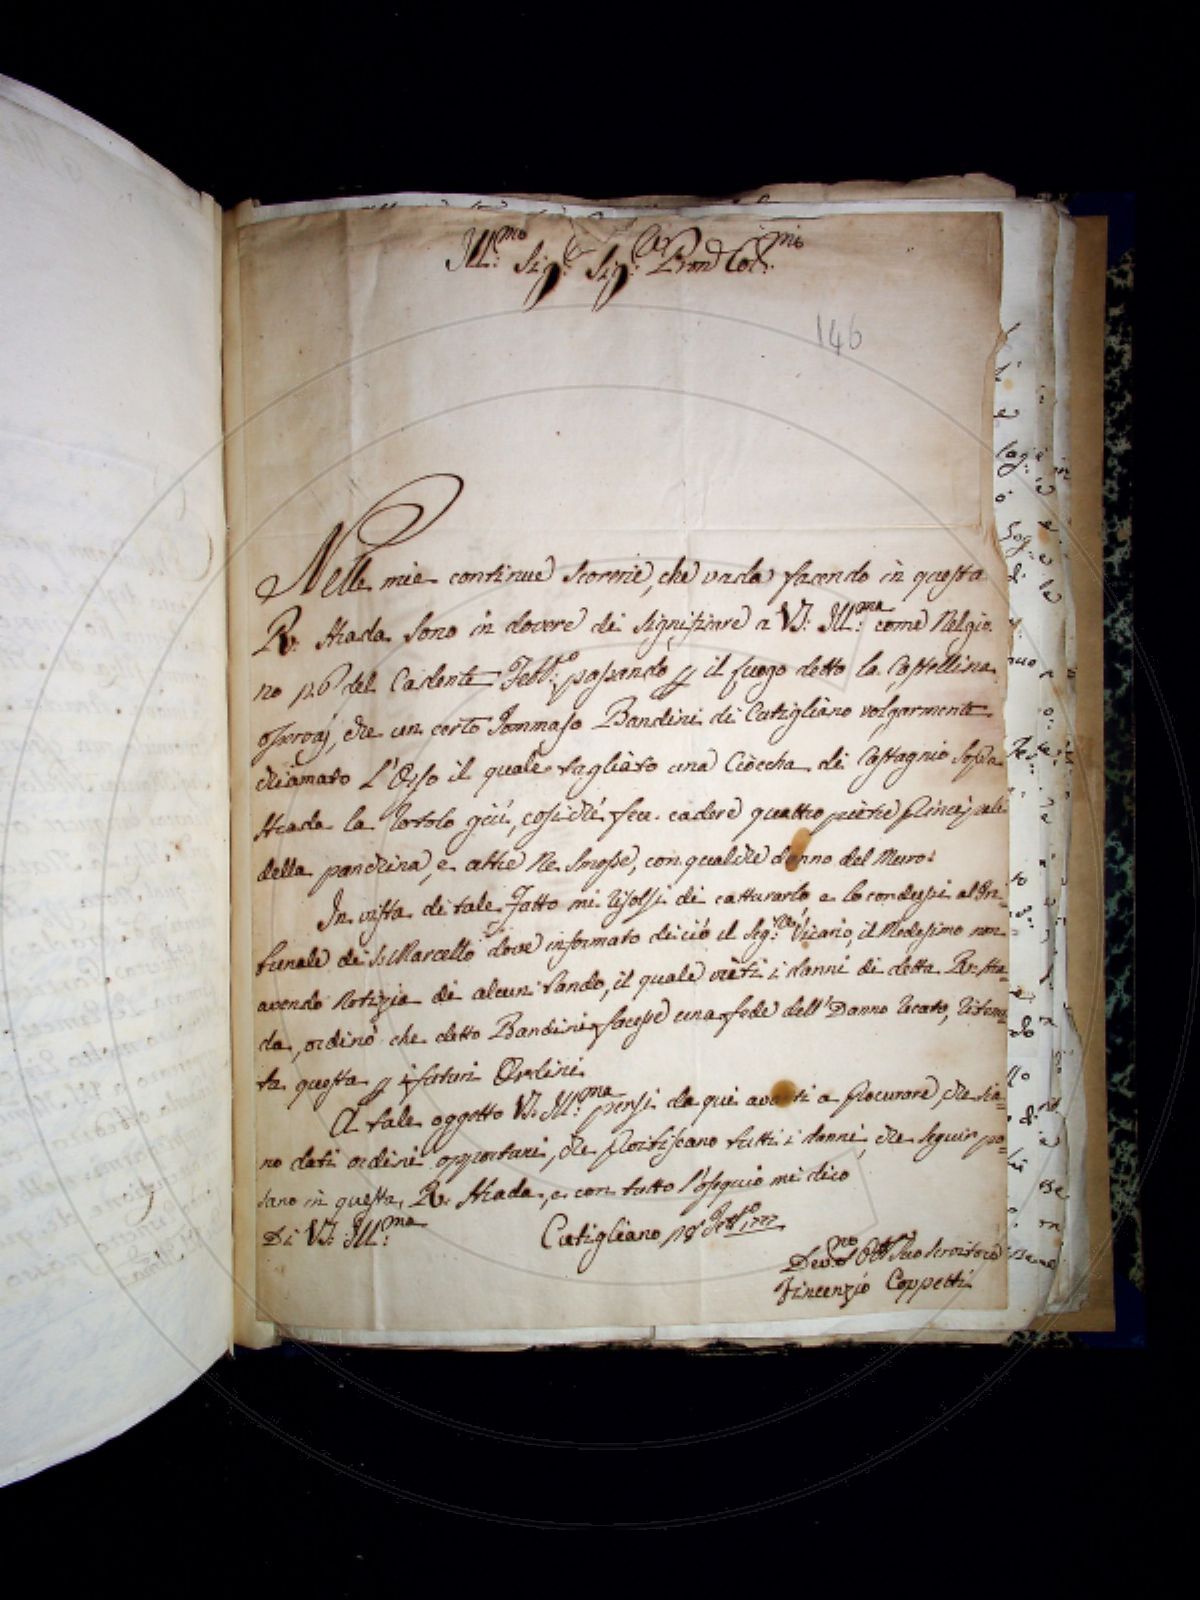 Ill:mo Sig:r Sig:r Pron Col:mo
146
Nelle mie continue scorerie, che vada facendo in questa
R: Strada sono in dovere di significare a V:S: Ill:ma come Nel gior
no 16 del Cadente Febb:o passando p il luogo detto la Castellina
osservaj, che un certo Tommaso Bandini di Cutigliano volgarmente
chiamato L'Orso il quale tagliato una Ciocha di Castagnio sopra
strada la rotolo giù, cosi che fece cadere quattro pietre principali
della panchina, e altre ne smosse, con qualche danno del Muro:
In vista di tale Fatto mi risolsi di catturarlo e lo condussi al Tri=
bunale di S: Marcello dove informato di ciò il Sig:re Vicario, il Medesimo non
avendo notizia di alcun bando, il quale vieti i danni di detta R: Stra=
da, ordinò che detto Bandini facesse una fede dell' Danno recato, ritenu=
ta questa p i futuri Ordini
A tale oggetto V:S: Ill:ma pensi da qui avanti a procurare, che sia=
no dati ordini opportuni, che proibiscano tutti i danni, che seguir po=
sano in questa R: Strada, e con tutto l'ossequio mi dico
Di V:S: Ill:ma
Cutigliano 18 Febb:o 1777
Dev:mo Obb:mo Suo Servitore
Vincenzio Coppetti